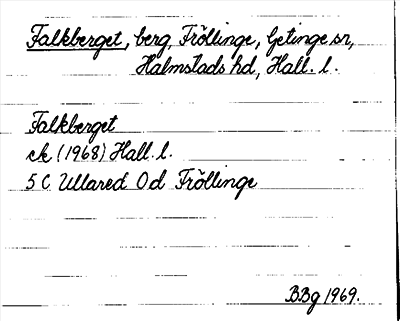 Falkberget, berg, Fröllinge, Getinge sn,
Halmstads hd, Hall. l.
Falkberget
ek (1968) Hall. l.
5 C Ullared Od Fröllinge
BBg 1969.